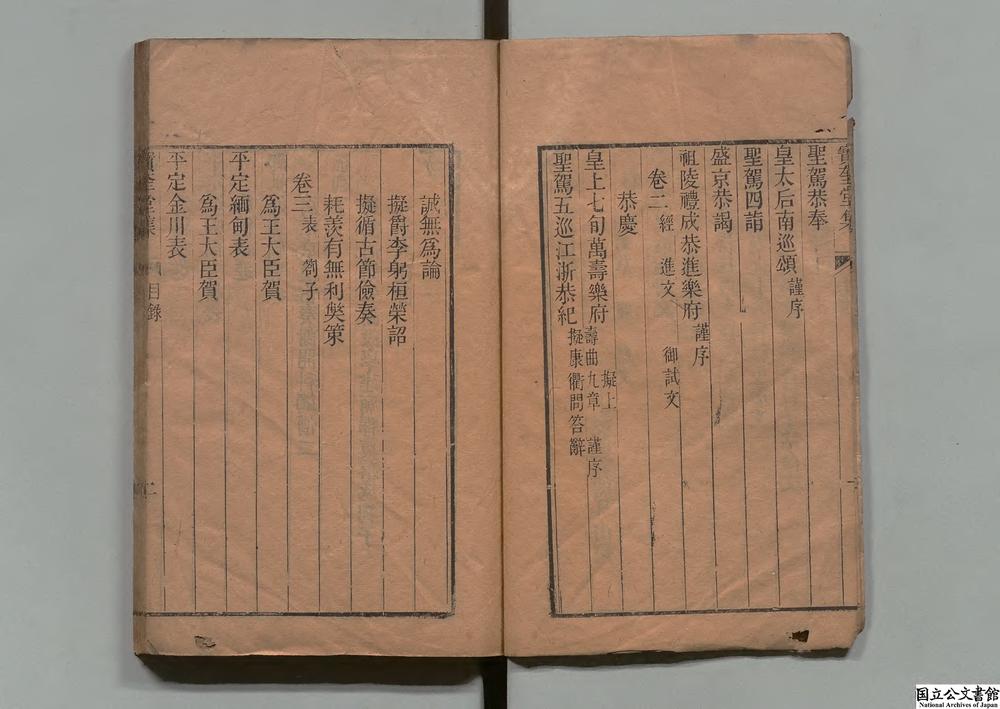 寶奎堂集
聖駕恭奉
皇太后南巡頌 謹序
聖駕四詣
盛京恭謁
祖陵禮成恭進樂府 謹序
卷二 經 進文 御試文
恭慶
皇上七旬萬壽樂府 擬上壽曲九章 謹序
聖駕五巡江浙恭紀 擬康衢問答辭
誠無為論
擬爵李躬桓榮詔
擬循古節儉奏
耗羨有無利獘策
卷三 表 劄子
為王大臣賀
平定緬甸表
為王大臣賀
平定金川表
寶奎堂集 目錄 二
国立公文書館
National Archives of Japan